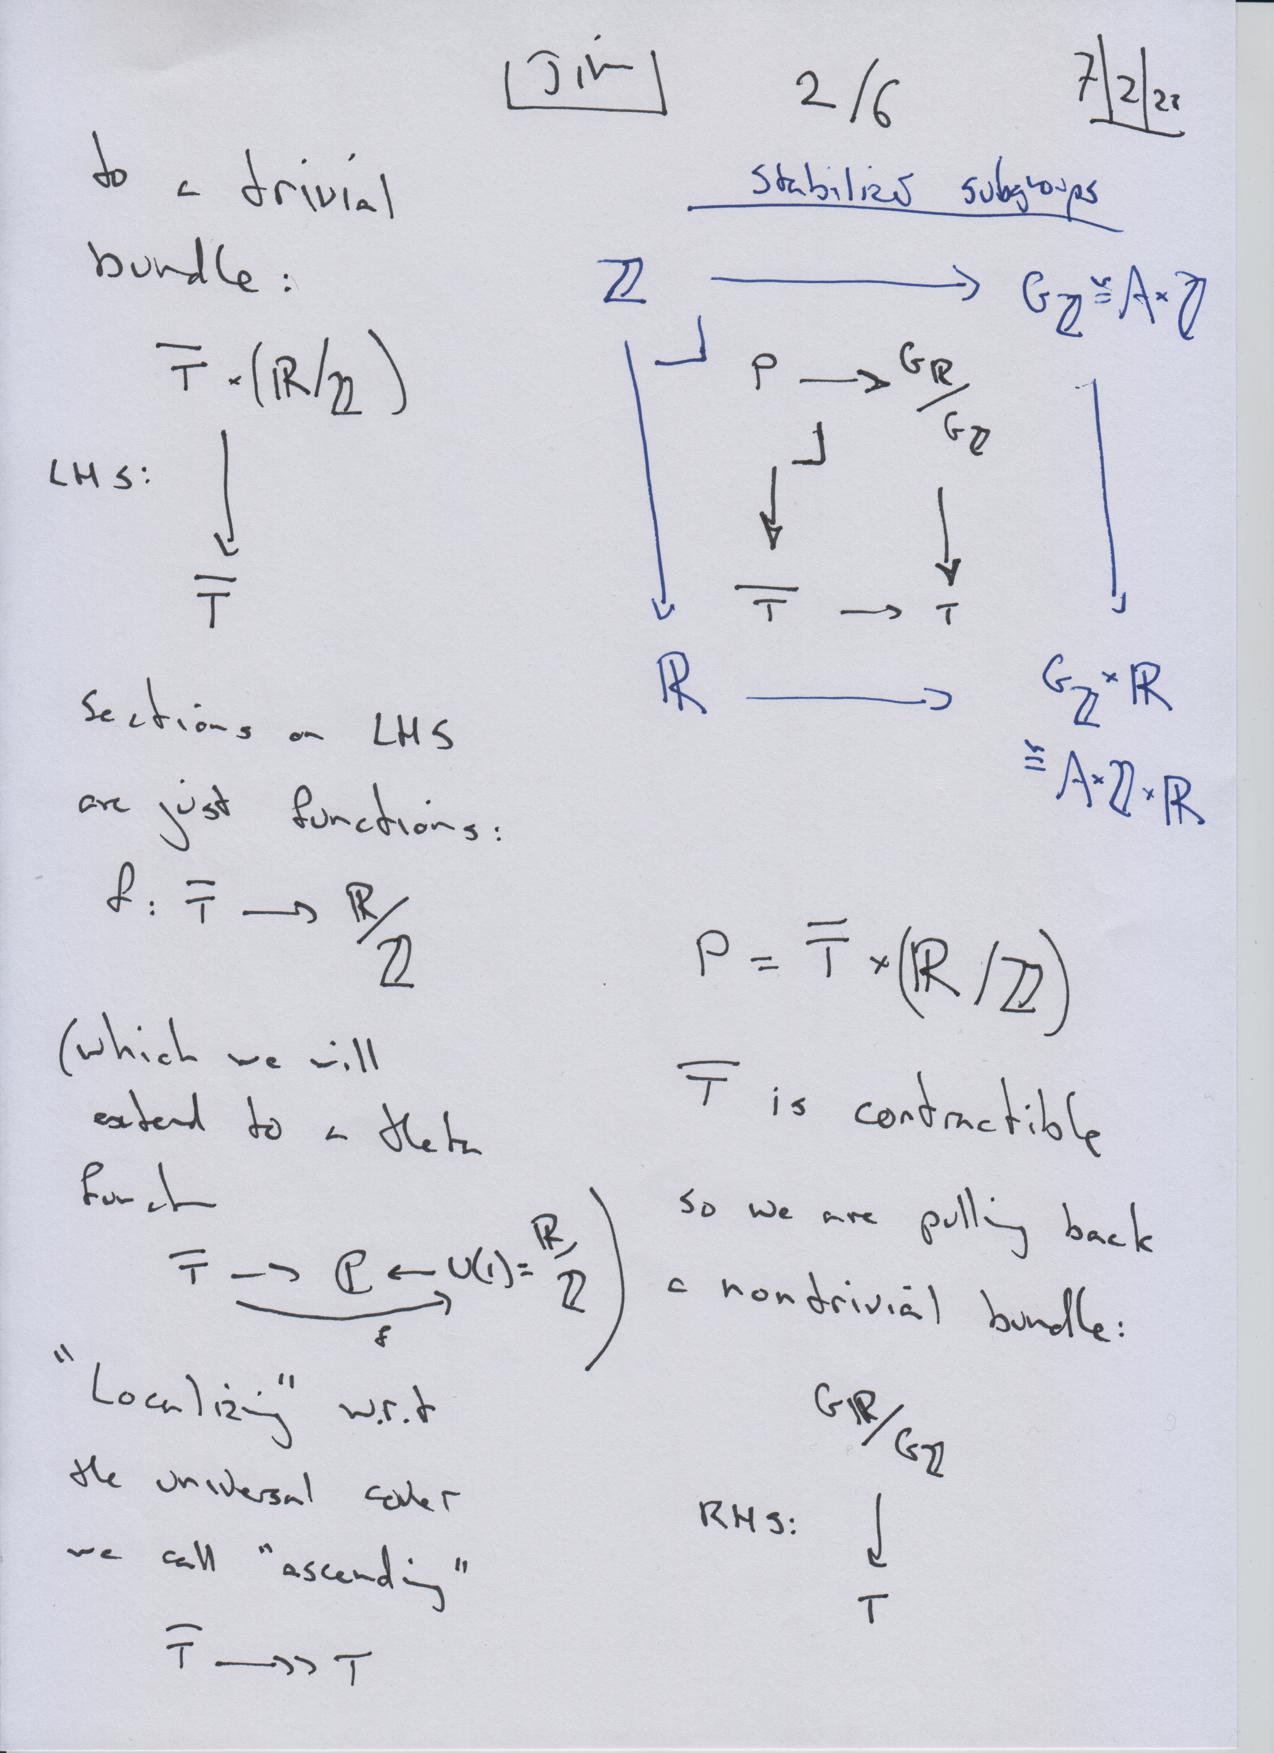 Jim 2/6 7/2/22
to a trivial
bundle:
T̅ × (ℝ/ℤ)
LHS: ↓
T̅
sections on LHS
are just functions:
f: T̅ → ℝ/ℤ
(which we will
extend to a theta
funct
T̅ → ℙ ← U(1) = ℝ/ℤ )
f
"Localizing" w.r.t
the universal cover
we call "ascending"
T̅ ↠ T
stabilizer subgroups
ℤ → Gℤ ≅ A × ℤ
P → Gℝ/Gℤ
T̅ → T
ℝ → Gℤ × ℝ
≅ A × ℤ × ℝ
P = T̅ × (ℝ/ℤ)
T̅ is contractible
so we are pulling back
a nontrivial bundle:
Gℝ/Gℤ
RHS: ↓
T